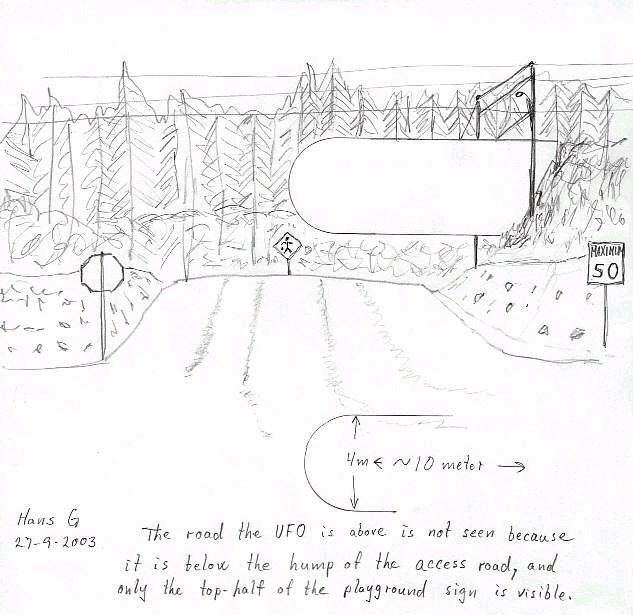 MAXIMUM
50
4m ~10 meter
Hans G
27-9-2003
The road the UFO is above is not seen because
it is below the hump of the access road, and
only the top-half of the playground sign is visible.